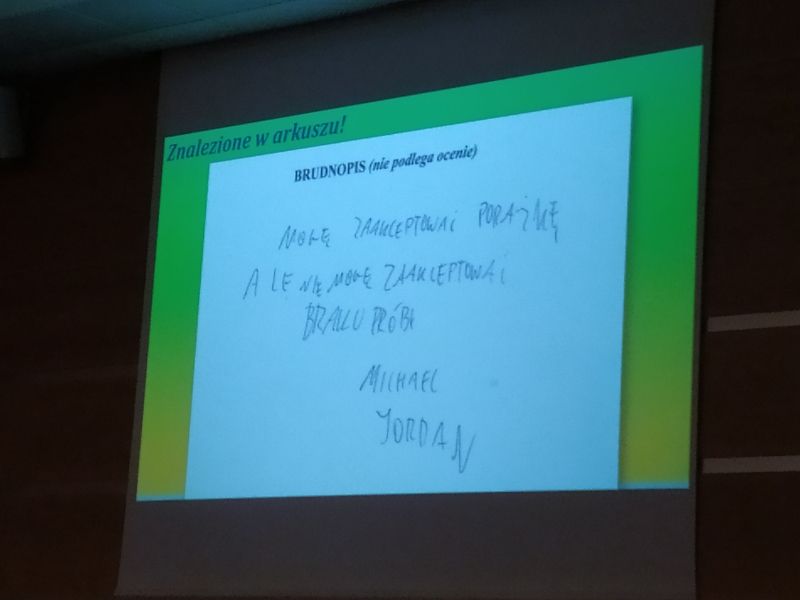 Znalezione w arkuszu!
BRUDNOPIS (nie podlega ocenie)
MOGĘ ZAAKCEPTOWAĆ PORAŻKĘ
ALE NIE MOGĘ ZAAKCEPTOWAĆ
BRAKU PRÓBY
MICHAEL
JORDAN